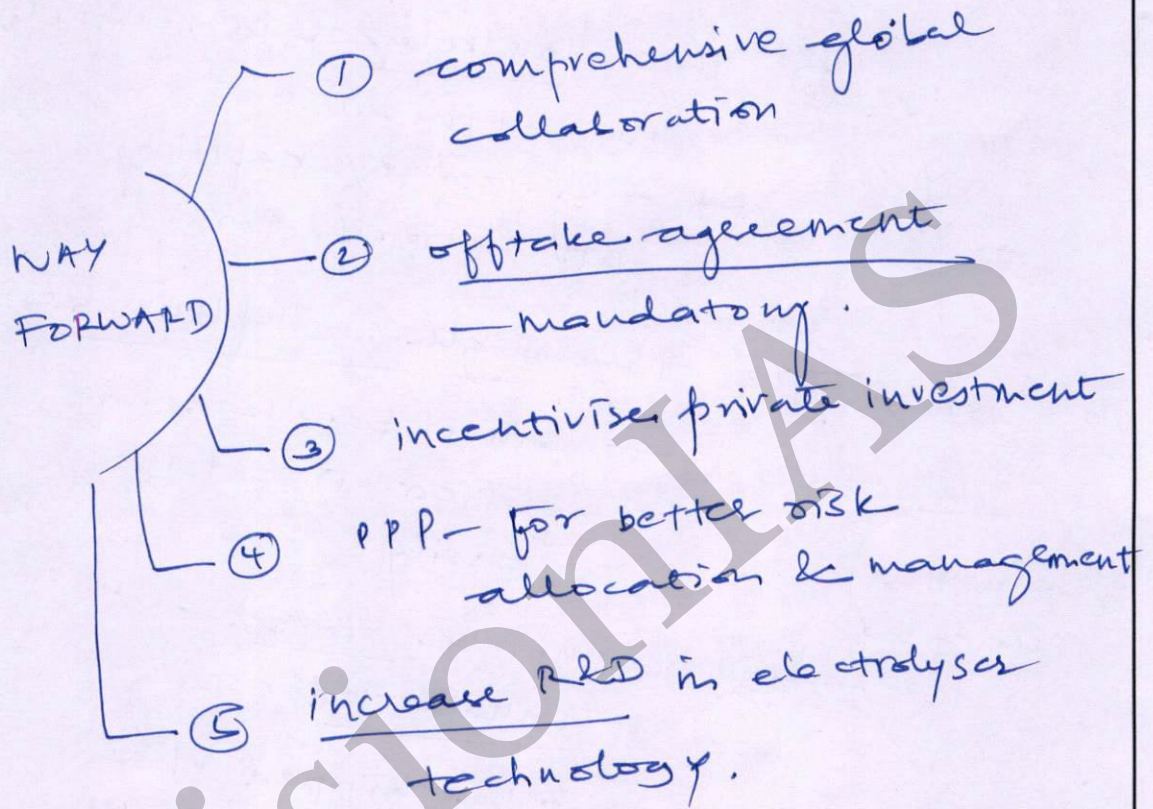 ① comprehensive global
collaboration
WAY
FORWARD
② offtake agreement
— mandatory.
③ incentivise private investment
④ PPP - for better risk
allocation & management
⑤ increase R&D in electrolyser
technology.
VisionIAS